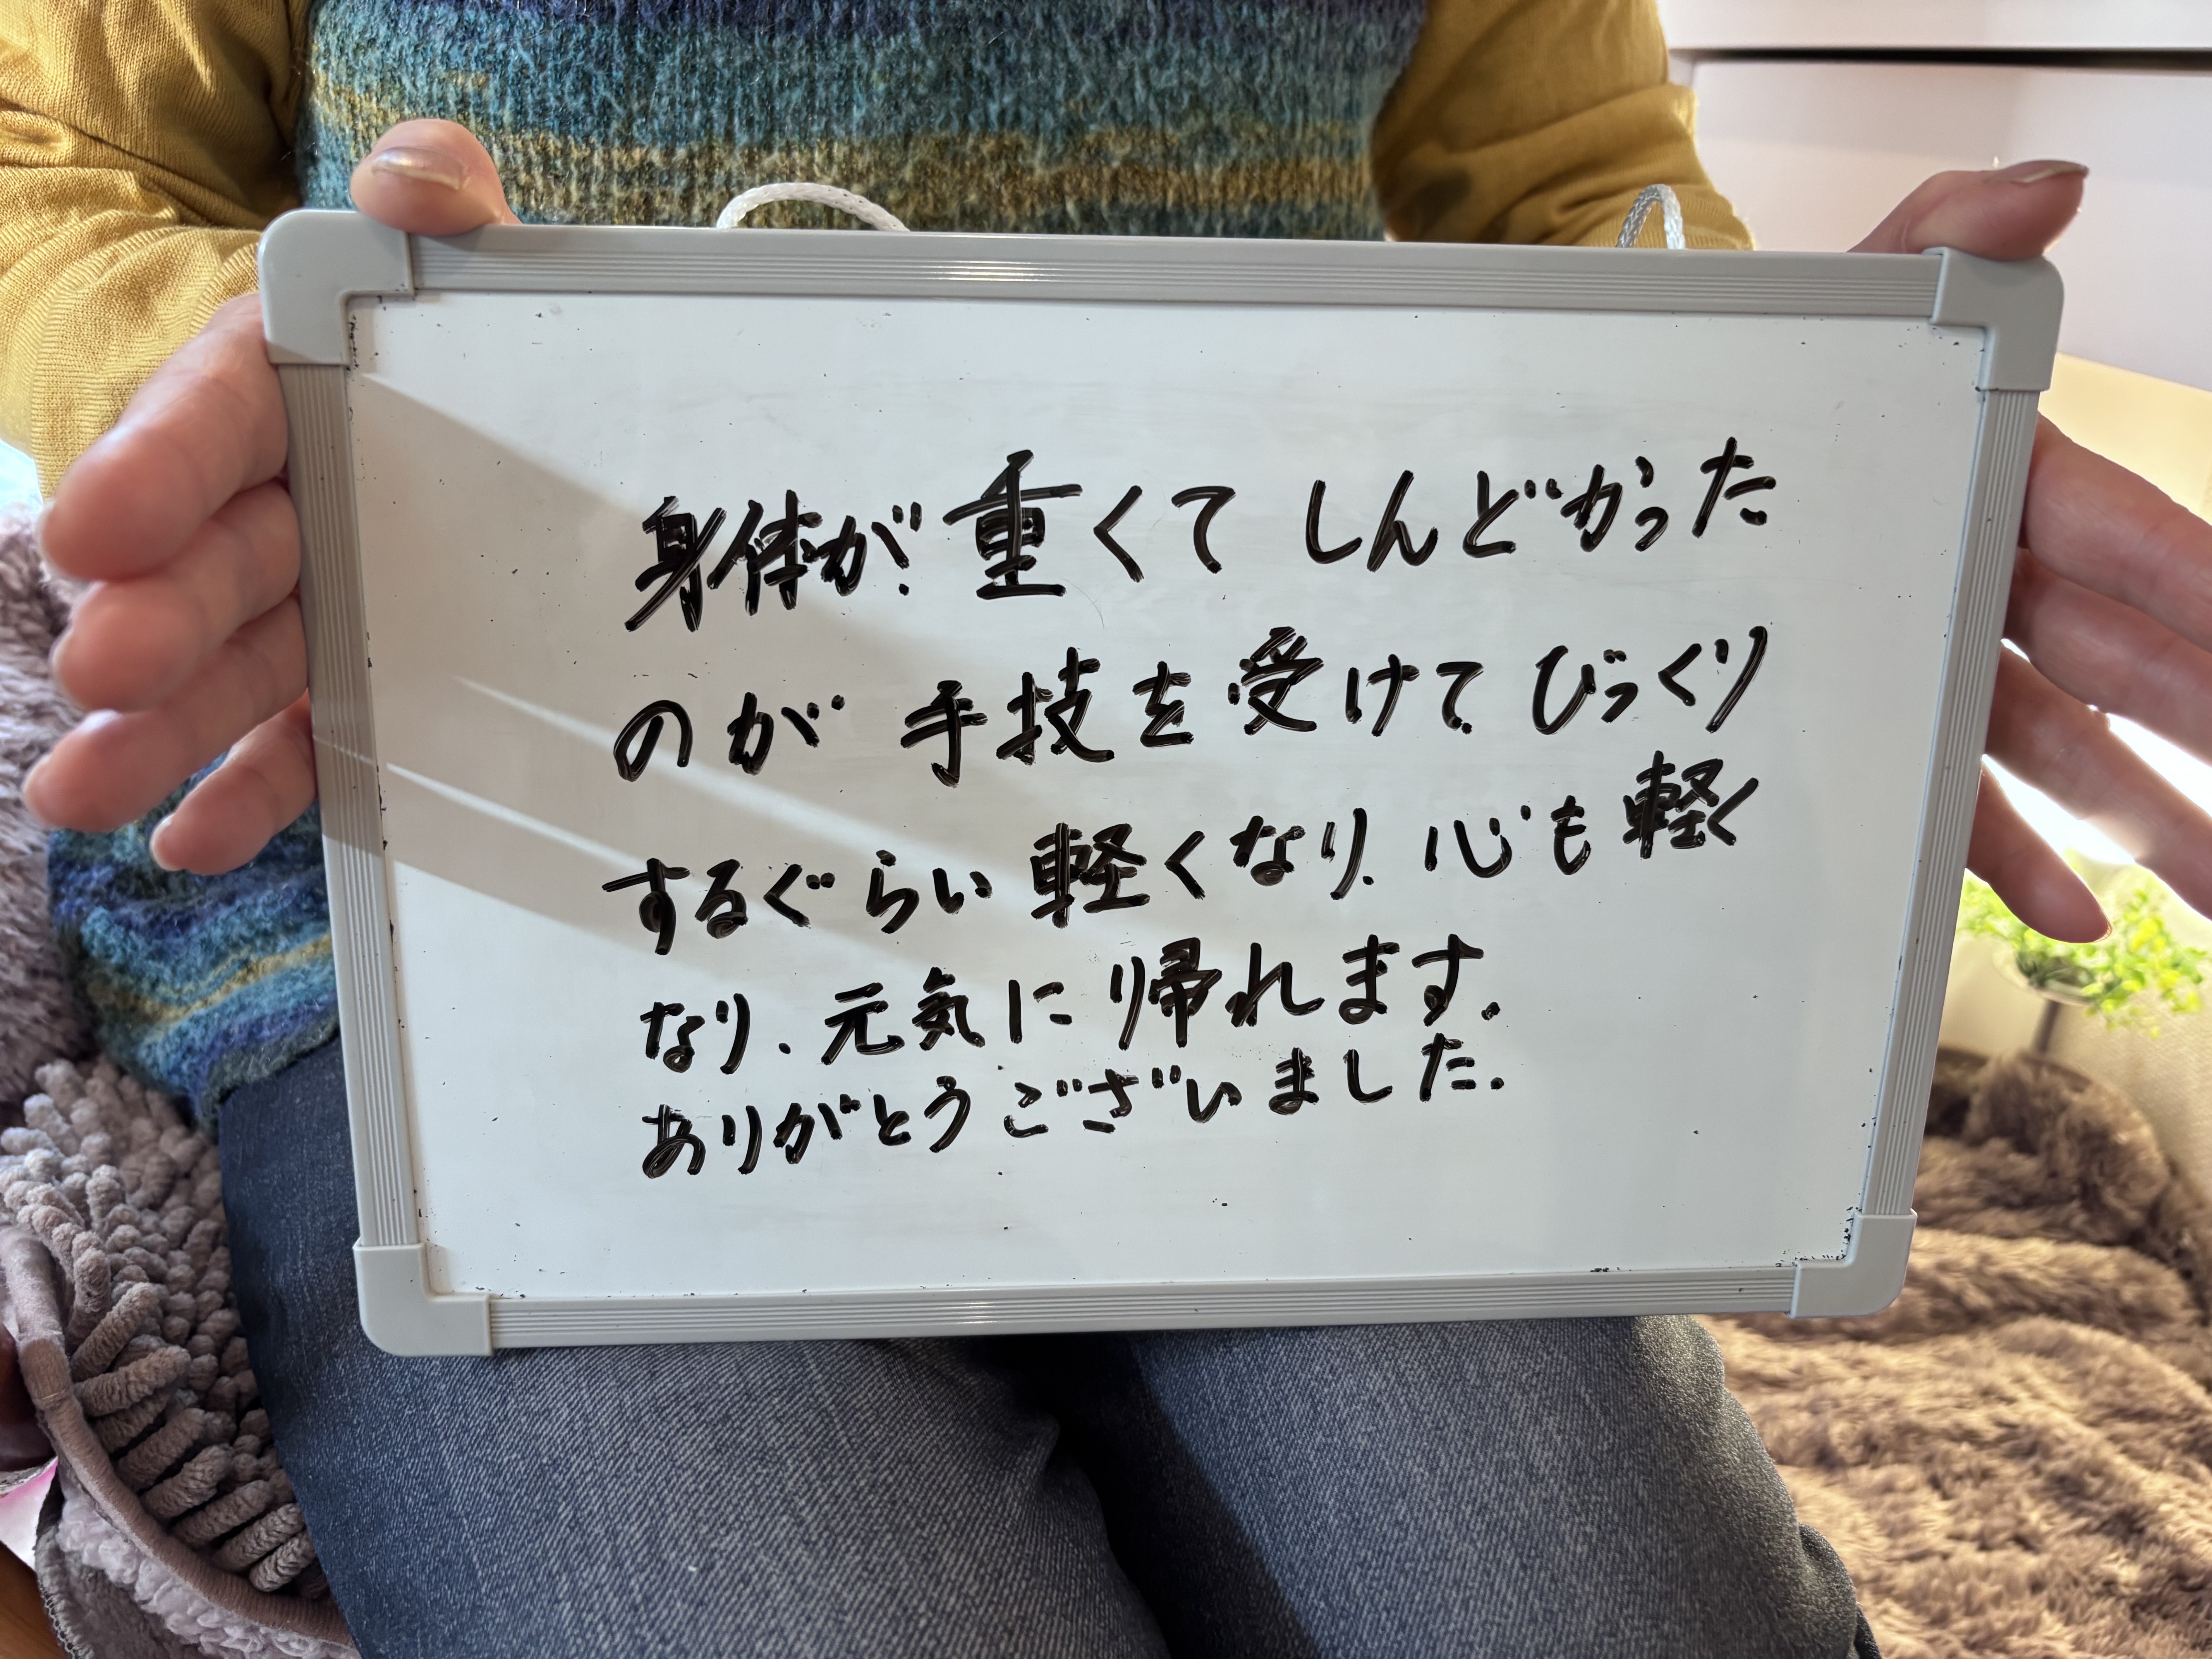 身体が重くてしんどかった
のが手技を受けてびっくり
するぐらい軽くなり、心も軽く
なり、元気に帰れます。
ありがとうございました。